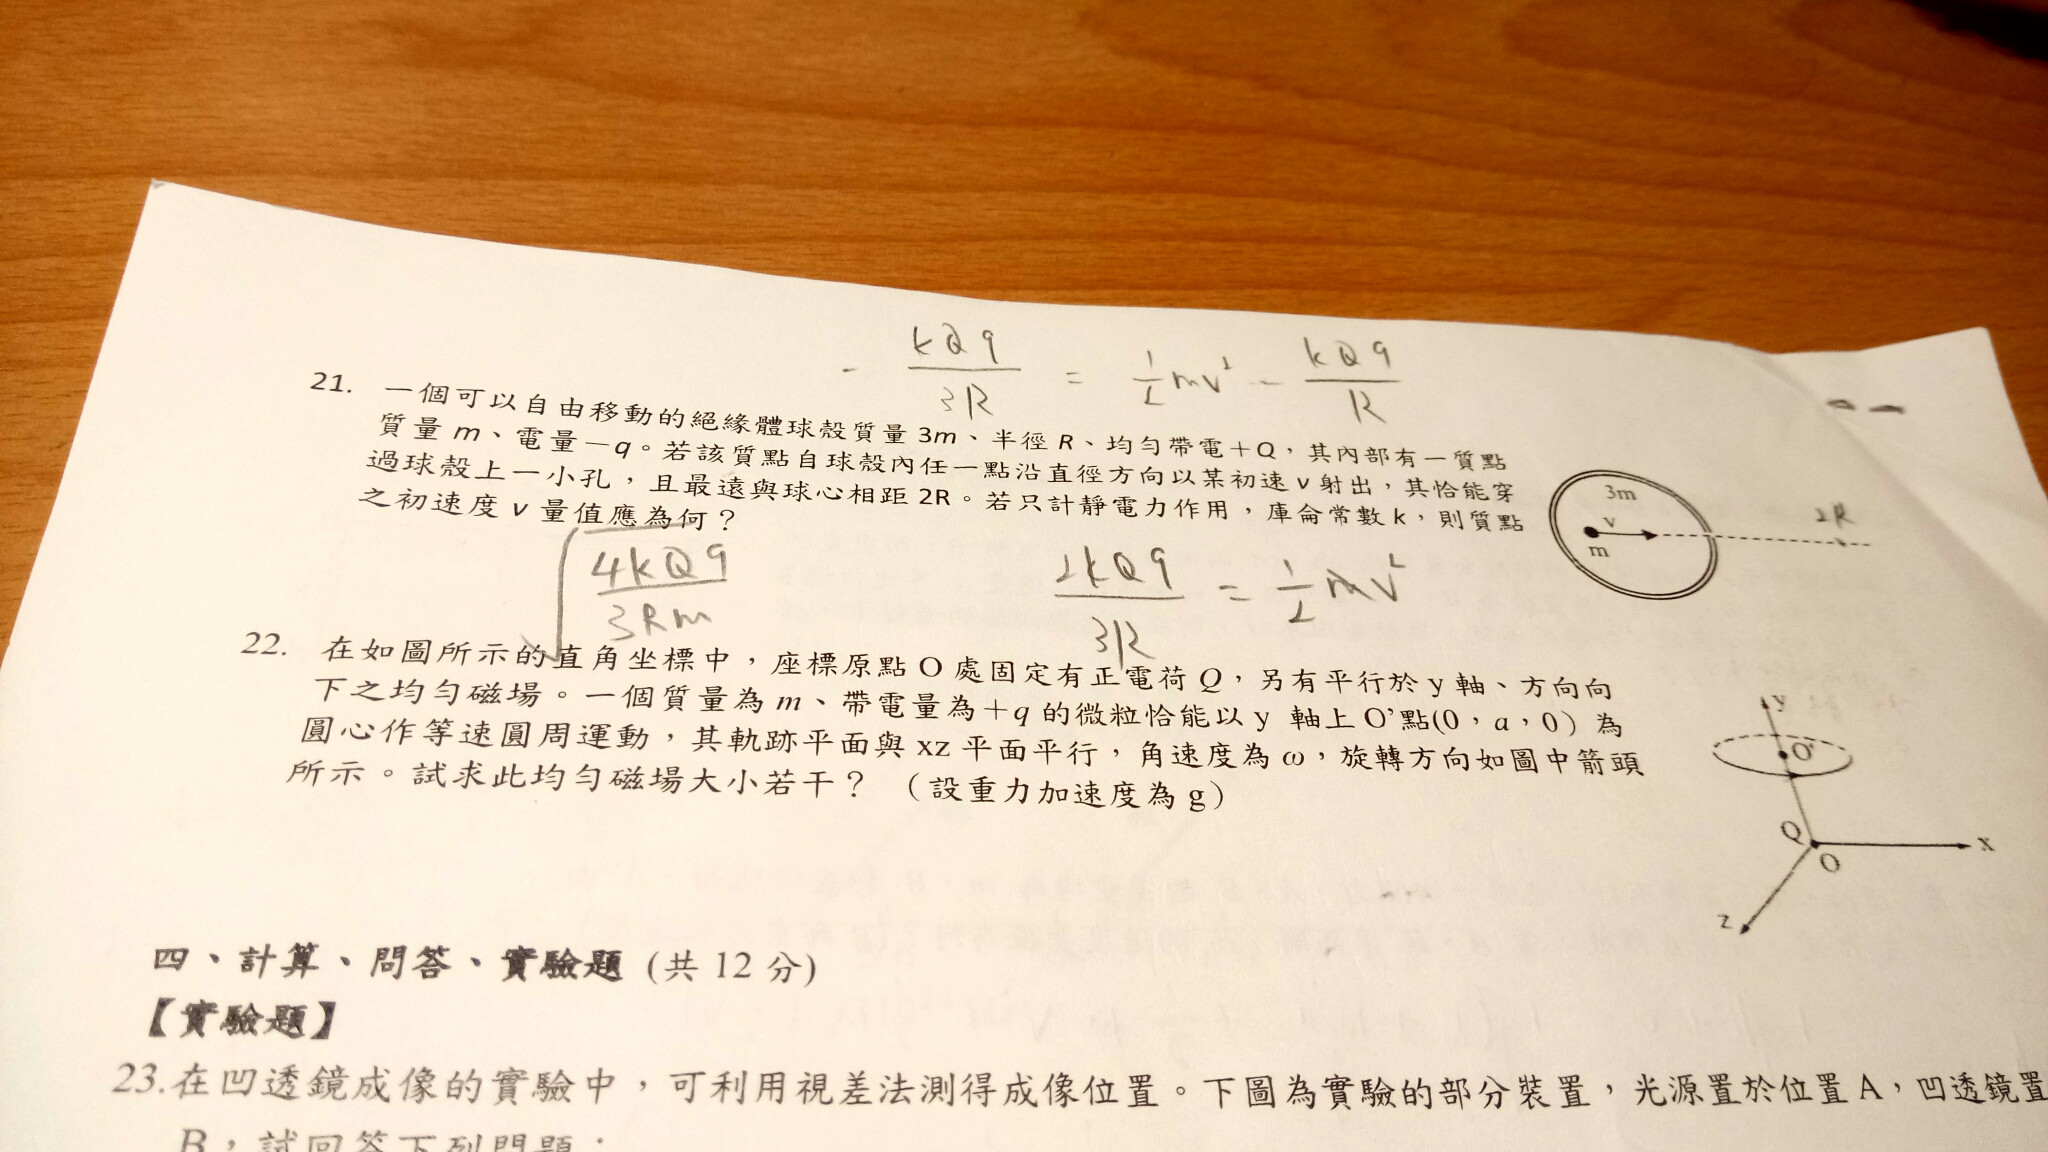 - kQq/3R = 1/2 mv² - kQq/R
21. 一個可以自由移動的絕緣體球殼質量 3m、半徑 R、均勻帶電+Q,其內部有一質點
質量 m、電量-q。若該質點自球殼內任一點沿直徑方向以某初速 v 射出,其恰能穿
過球殼上一小孔,且最遠與球心相距 2R。若只計靜電力作用,庫侖常數 k,則質點
之初速度 v 量值應為何?
3m
v
m
2R
√(4kQq/3Rm)
2kQq/3R = 1/2 mv²
22. 在如圖所示的直角坐標中,座標原點 O 處固定有正電荷 Q,另有平行於 y 軸、方向向
下之均勻磁場。一個質量為 m、帶電量為+q 的微粒恰能以 y 軸上 O'點(0,a,0) 為
圓心作等速圓周運動,其軌跡平面與 xz 平面平行,角速度為 ω,旋轉方向如圖中箭頭
所示。試求此均勻磁場大小若干? (設重力加速度為 g)
y
O'
Q
O
x
z
四、計算、問答、實驗題 (共 12 分)
【實驗題】
23.在凹透鏡成像的實驗中,可利用視差法測得成像位置。下圖為實驗的部分裝置,光源置於位置 A,凹透鏡置
B,試回答下列問題: